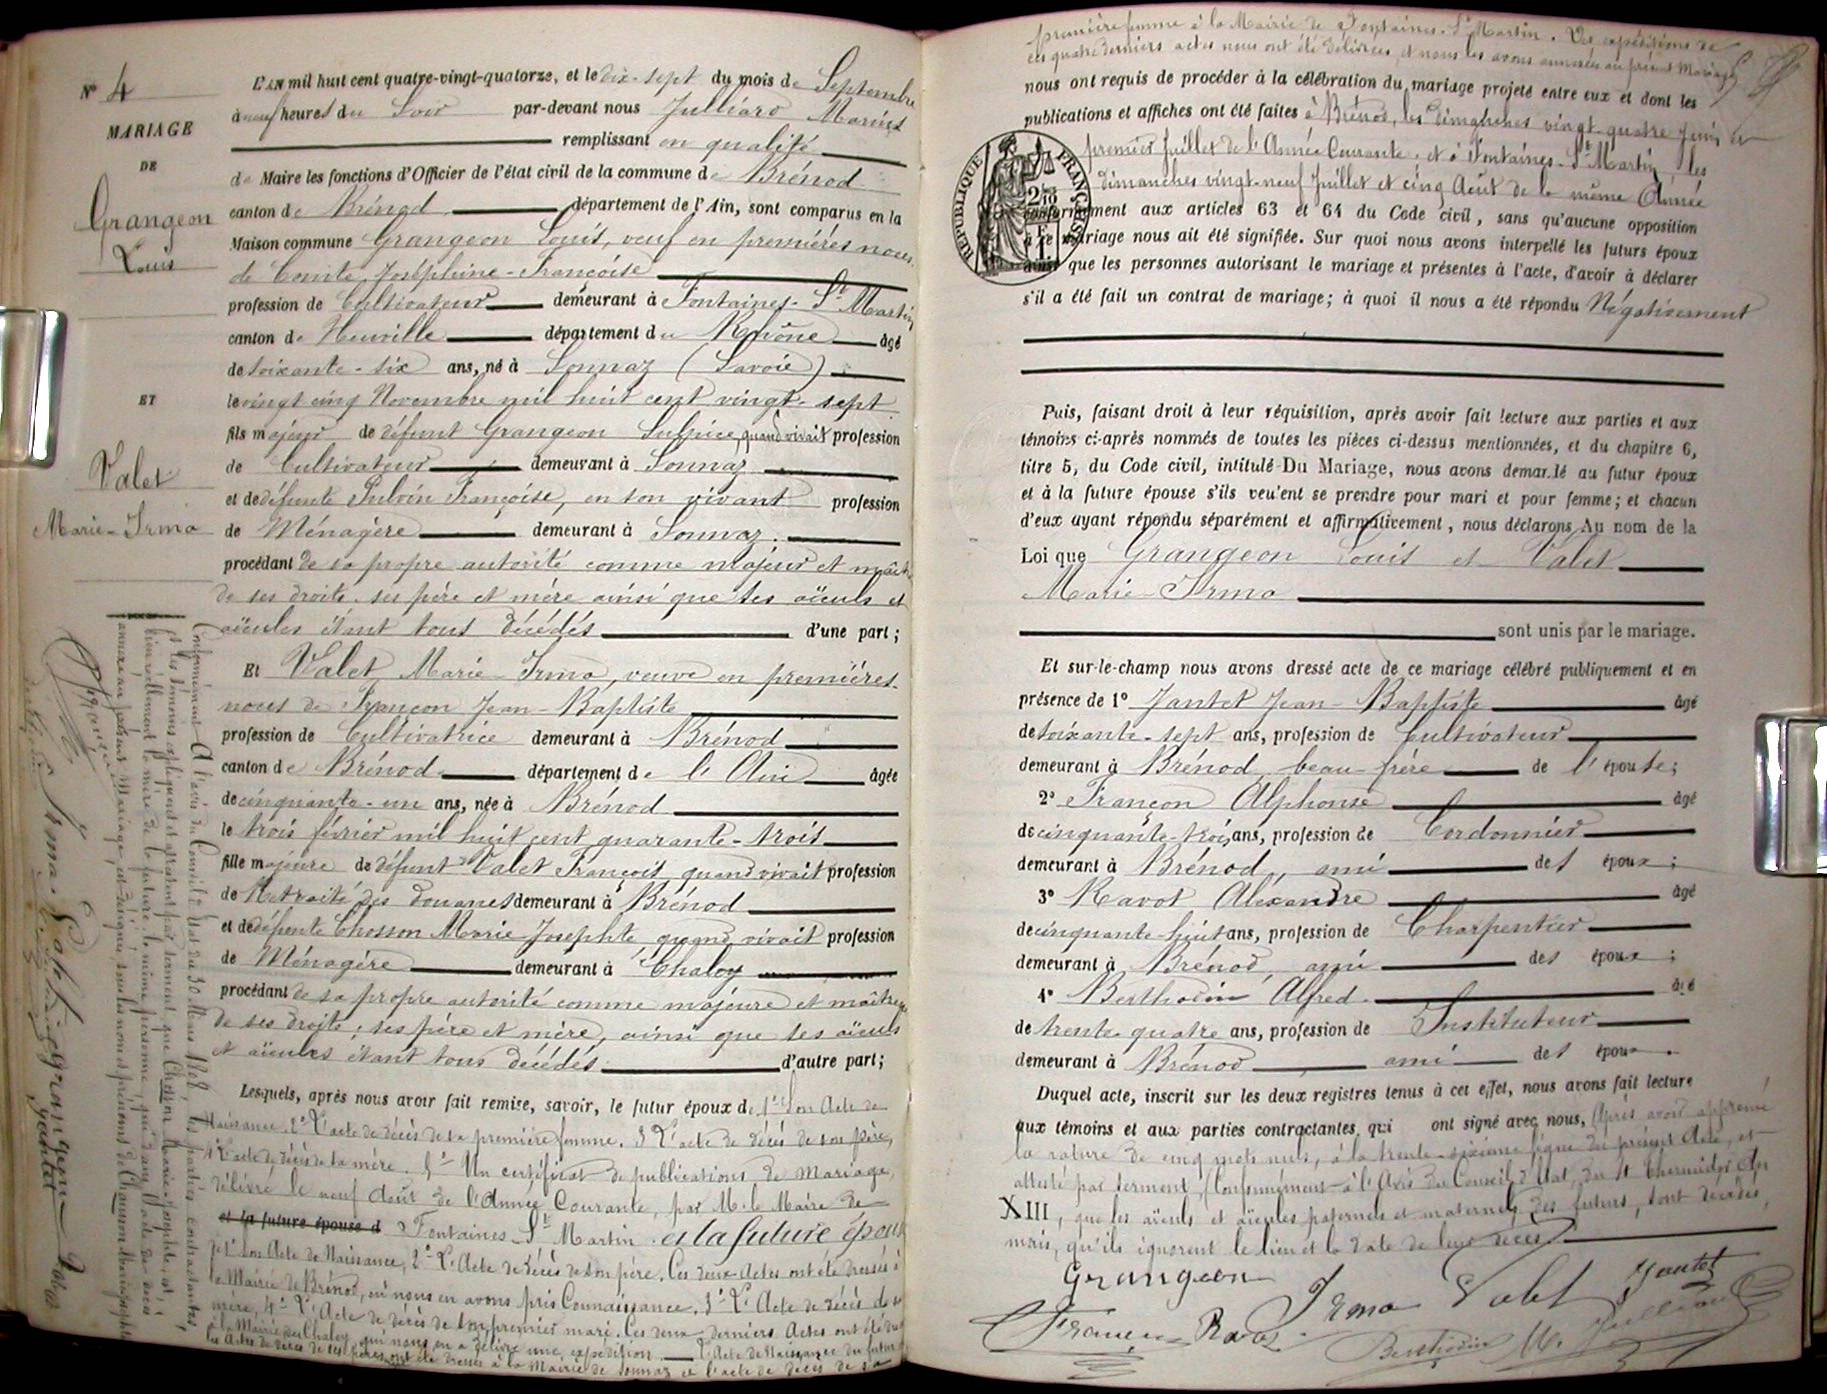 N° 4
MARIAGE
DE
Grangeon
Louis
ET
Valet
Marie-Irma
L'AN mil huit cent quatre-vingt-quatorze, et le dix-sept du mois de Septembre
à neuf heures du Soir par-devant nous Julliard Marius
remplissant en qualité
de Maire les fonctions d'Officier de l'état civil de la commune de Brénod
canton de Brénod département de l'Ain, sont comparus en la
Maison commune Grangeon Louis, veuf en premières noces
de Comte Joséphine-Françoise
profession de Cultivateur demeurant à Fontaines-St-Martin
canton de Neuville département du Rhône âgé
de soixante-six ans, né à Sonnaz (Savoie)
le vingt cinq Novembre mil huit cent vingt-sept
fils majeur de défunt Grangeon Sulpice, quand vivait profession
de Cultivateur demeurant à Sonnaz
et de défunte Pulvin Françoise, en son vivant profession
de Ménagère demeurant à Sonnaz.
procédant de sa propre autorité comme majeur et maître
de ses droits. ses père et mère ainsi que ses aïeuls et
aïeules étant tous décédés d'une part;
Et Valet Marie Irma, veuve en premières
noces de Françon Jean-Baptiste
profession de Cultivatrice demeurant à Brénod
canton de Brénod département de l'Ain âgée
de cinquante-un ans, née à Brénod
le trois février mil huit cent quarante-trois
fille majeure de défunt Valet François quand vivait profession
de Retraité des douanes demeurant à Brénod
et de défunte Chosson Marie Josephte quand vivait profession
de Ménagère demeurant à Chaley
procédant de sa propre autorité comme majeure et maîtresse
de ses droits; ses père et mère, ainsi que ses aïeuls
et aïeules étant tous décédés d'autre part;
Lesquels, après nous avoir fait remise, savoir, le futur époux de 1° Son Acte de
Naissance. 2° L'acte de décès de sa première femme. 3° L'acte de décès de son père,
4° L'acte de décès de sa mère. 5° Un certificat de publications de Mariage,
délivré le neuf Août de l'Année Courante, par M. le Maire de
et la future épouse d Fontaines St Martin. et la future épouse
de 1° Son Acte de Naissance, 2° L'Acte de décès de son père. Ces deux Actes ont été dressés à
la Mairie de Brénod, où nous en avons pris Connaissance. 3° L'Acte de décès de sa
mère, 4° L'Acte de décès de son premier mari. Ces deux derniers Actes ont été
à la Mairie de Chaley qui nous en a délivré une expédition. L'Acte de Naissance du futur
les Actes de décès de ses père ont été dressés à la Mairie de Sonnaz et l'acte de décès de sa
Conformément à l'avis du Conseil d'Etat du 30 Mars 1808, les parties contractantes,
et les témoins expliquent et attestent par serment que Chosson Marie-Josephte, est,
bien réellement la mère de la future, la même personne, que dans l'acte de décès
annexé au présent Mariage, est désignée sous les nom et prénoms de
Irma Valet Grangeon
Jantet
première femme à la Mairie de Fontaines-St-Martin. Des expéditions de
ces quatre derniers actes nous ont été délivrées, et nous les avons annexées au présent Mariage
nous ont requis de procéder à la célébration du mariage projeté entre eux et dont les
publications et affiches ont été faites à Brénod, les dimanches vingt-quatre Juin et
premier Juillet de l'Année Courante, et à Fontaines-St-Martin les
dimanches vingt-neuf Juillet et cinq Août de la même Année
conformément aux articles 63 et 64 du Code civil, sans qu'aucune opposition
à ce mariage nous ait été signifiée. Sur quoi nous avons interpellé les futurs époux
ainsi que les personnes autorisant le mariage et présentes à l'acte, d'avoir à déclarer
s'il a été fait un contrat de mariage; à quoi il nous a été répondu Négativement
RÉPUBLIQUE FRANÇAISE
Puis, faisant droit à leur réquisition, après avoir fait lecture aux parties et aux
témoins ci-après nommés de toutes les pièces ci-dessus mentionnées, et du chapitre 6,
titre 5, du Code civil, intitulé Du Mariage, nous avons demandé au futur époux
et à la future épouse s'ils veulent se prendre pour mari et pour femme; et chacun
d'eux ayant répondu séparément et affirmativement, nous déclarons Au nom de la
Loi que Grangeon Louis et Valet
Marie-Irma
sont unis par le mariage.
Et sur-le-champ nous avons dressé acte de ce mariage célébré publiquement et en
présence de 1° Jantet Jean-Baptiste âgé
de soixante-sept ans, profession de Cultivateur
demeurant à Brénod beau-frère de l'épouse;
2° Françon Alphonse âgé
de cinquante-trois ans, profession de Cordonnier
demeurant à Brénod, ami des époux;
3° Ravot Aléxandre âgé
de cinquante-huit ans, profession de Charpentier
demeurant à Brénod ami des époux;
4° Berthodin Alfred âgé
de trente quatre ans, profession de Instituteur
demeurant à Brénod ami des époux.
Duquel acte, inscrit sur les deux registres tenus à cet effet, nous avons fait lecture
aux témoins et aux parties contractantes, qui ont signé avec nous, Après avoir approuvé
la rature de cinq mots nuls, à la trente-sixième ligne du présent Acte, et
attesté par serment, Conformément à l'Avis du Conseil d'Etat, du 4 Thermidor An
XIII, que les aïeuls et aïeules paternels et maternels des futurs, sont décédés,
mais, qu'ils ignorent le lieu et la date de leur décès.
Grangeon Irma Valet Jantet
Françon Ravot Berthodin M. Julliard